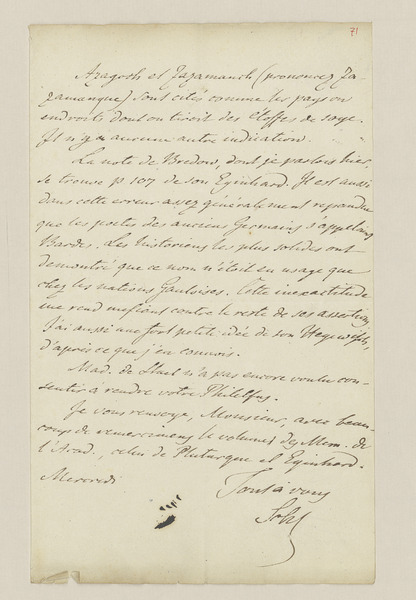 71
Azagosh et Zazamanch (prononcez Za-
zamanque) sont cités comme les pays ou
endroits dont on tiroit des étoffes de soye.
Il n'y a aucune autre indication.
La note de Bredow, dont je parlois hier,
se trouve p 107 de son Eginhard. Il est aussi
dans cette erreur assez généralement repandue
que les poetes des anciens Germains s'appeloient
Bardes. Les historiens les plus solides ont
demontré que ce nom n'étoit en usage que
chez les nations Gauloises. Cette inexactitude
me rend mefiant contre le reste de ses assertions,
j'ai aussi une fort petite idée de son
d'après ce que j'en connois.
Mad. de Stael n'a pas encore voulu con-
sentir à rendre votre
Je vous renvoye, Monsieur, avec beau-
coup de remercimens le volume des Mem. de
l'Acad., celui de Plutarque et Eginhard.
Mercredi
Tout à vous
Schl